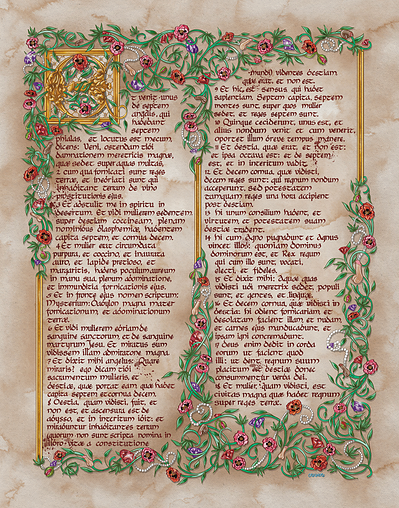 Et venit unus
de septem
angelis, qui
habebant
septem
phialas, et locutus est mecum,
dicens: Veni, ostendam tibi
damnationem meretricis magnæ,
quæ sedet super aquas multas,
2 cum qua fornicati sunt reges
terræ, et inebriati sunt qui
inhabitant terram de vino
prostitutionis ejus.
3 Et abstulit me in spiritu in
desertum. Et vidi mulierem sedentem
super bestiam coccineam, plenam
nominibus blasphemiæ, habentem
capita septem, et cornua decem.
4 Et mulier erat circumdata
purpura, et coccino, et inaurata
auro, et lapide pretioso, et
margaritis, habens poculum aureum
in manu sua, plenum abominatione
et immunditia fornicationis ejus.
5 Et in fronte ejus nomen scriptum:
Mysterium: Babylon magna, mater
fornicationum, et abominationum
terræ.
6 Et vidi mulierem ebriam de
sanguine sanctorum, et de sanguine
martyrum Jesu. Et miratus sum
vidissem illam admiratione magna.
7 Et dixit mihi angelus: Quare
miraris? ego dicam tibi
sacramentum mulieris, et
bestiæ, quæ portat eam, quæ habet
capita septem et cornua decem.
8 Bestia, quam vidisti, fuit, et
non est, et ascensura est de
abysso, et in interitum ibit: et
mirabuntur inhabitantes terram
(quorum non sunt scripta nomina in
libro vitæ a constitutione
mundi) videntes bestiam,
quæ erat, et non est.
9 Et hic est sensus, qui habet
sapientiam. Septem capita, septem
montes sunt, super quos mulier
sedet, et reges septem sunt.
10 Quinque ceciderunt, unus est, et
alius nondum venit: et cum venerit,
oportet illum breve tempus manere.
11 Et bestia, quæ erat, et non est:
et ipsa octava est: et de septem
est, et in interitum vadit.
12 Et decem cornua, quæ vidisti,
decem reges sunt: qui regnum nondum
acceperunt, sed potestatem
tamquam reges una hora accipient
post bestiam.
13 Hi unum consilium habent, et
virtutem, et potestatem suam
bestiæ tradent.
14 Hi cum Agno pugnabunt et Agnus
vincet illos: quoniam Dominus
dominorum est, et Rex regum
qui cum illo sunt, vocati,
electi, et fideles.
15 Et dixit mihi: Aquæ quas
vidisti ubi meretrix sedet, populi
sunt, et gentes, et linguæ.
16 Et decem cornua, quæ vidisti in
bestia: hi odient fornicariam, et
desolatam facient illam, et nudam,
et carnes ejus manducabunt, et
ipsam igni concremabunt.
17 Deus enim dedit in corda
eorum ut faciant quod
illi: ut dent regnum suum
placitum est bestiæ donec
consummentur verba Dei.
18 Et mulier, quam vidisti, est
civitas magna quæ habet regnum
super reges terræ.